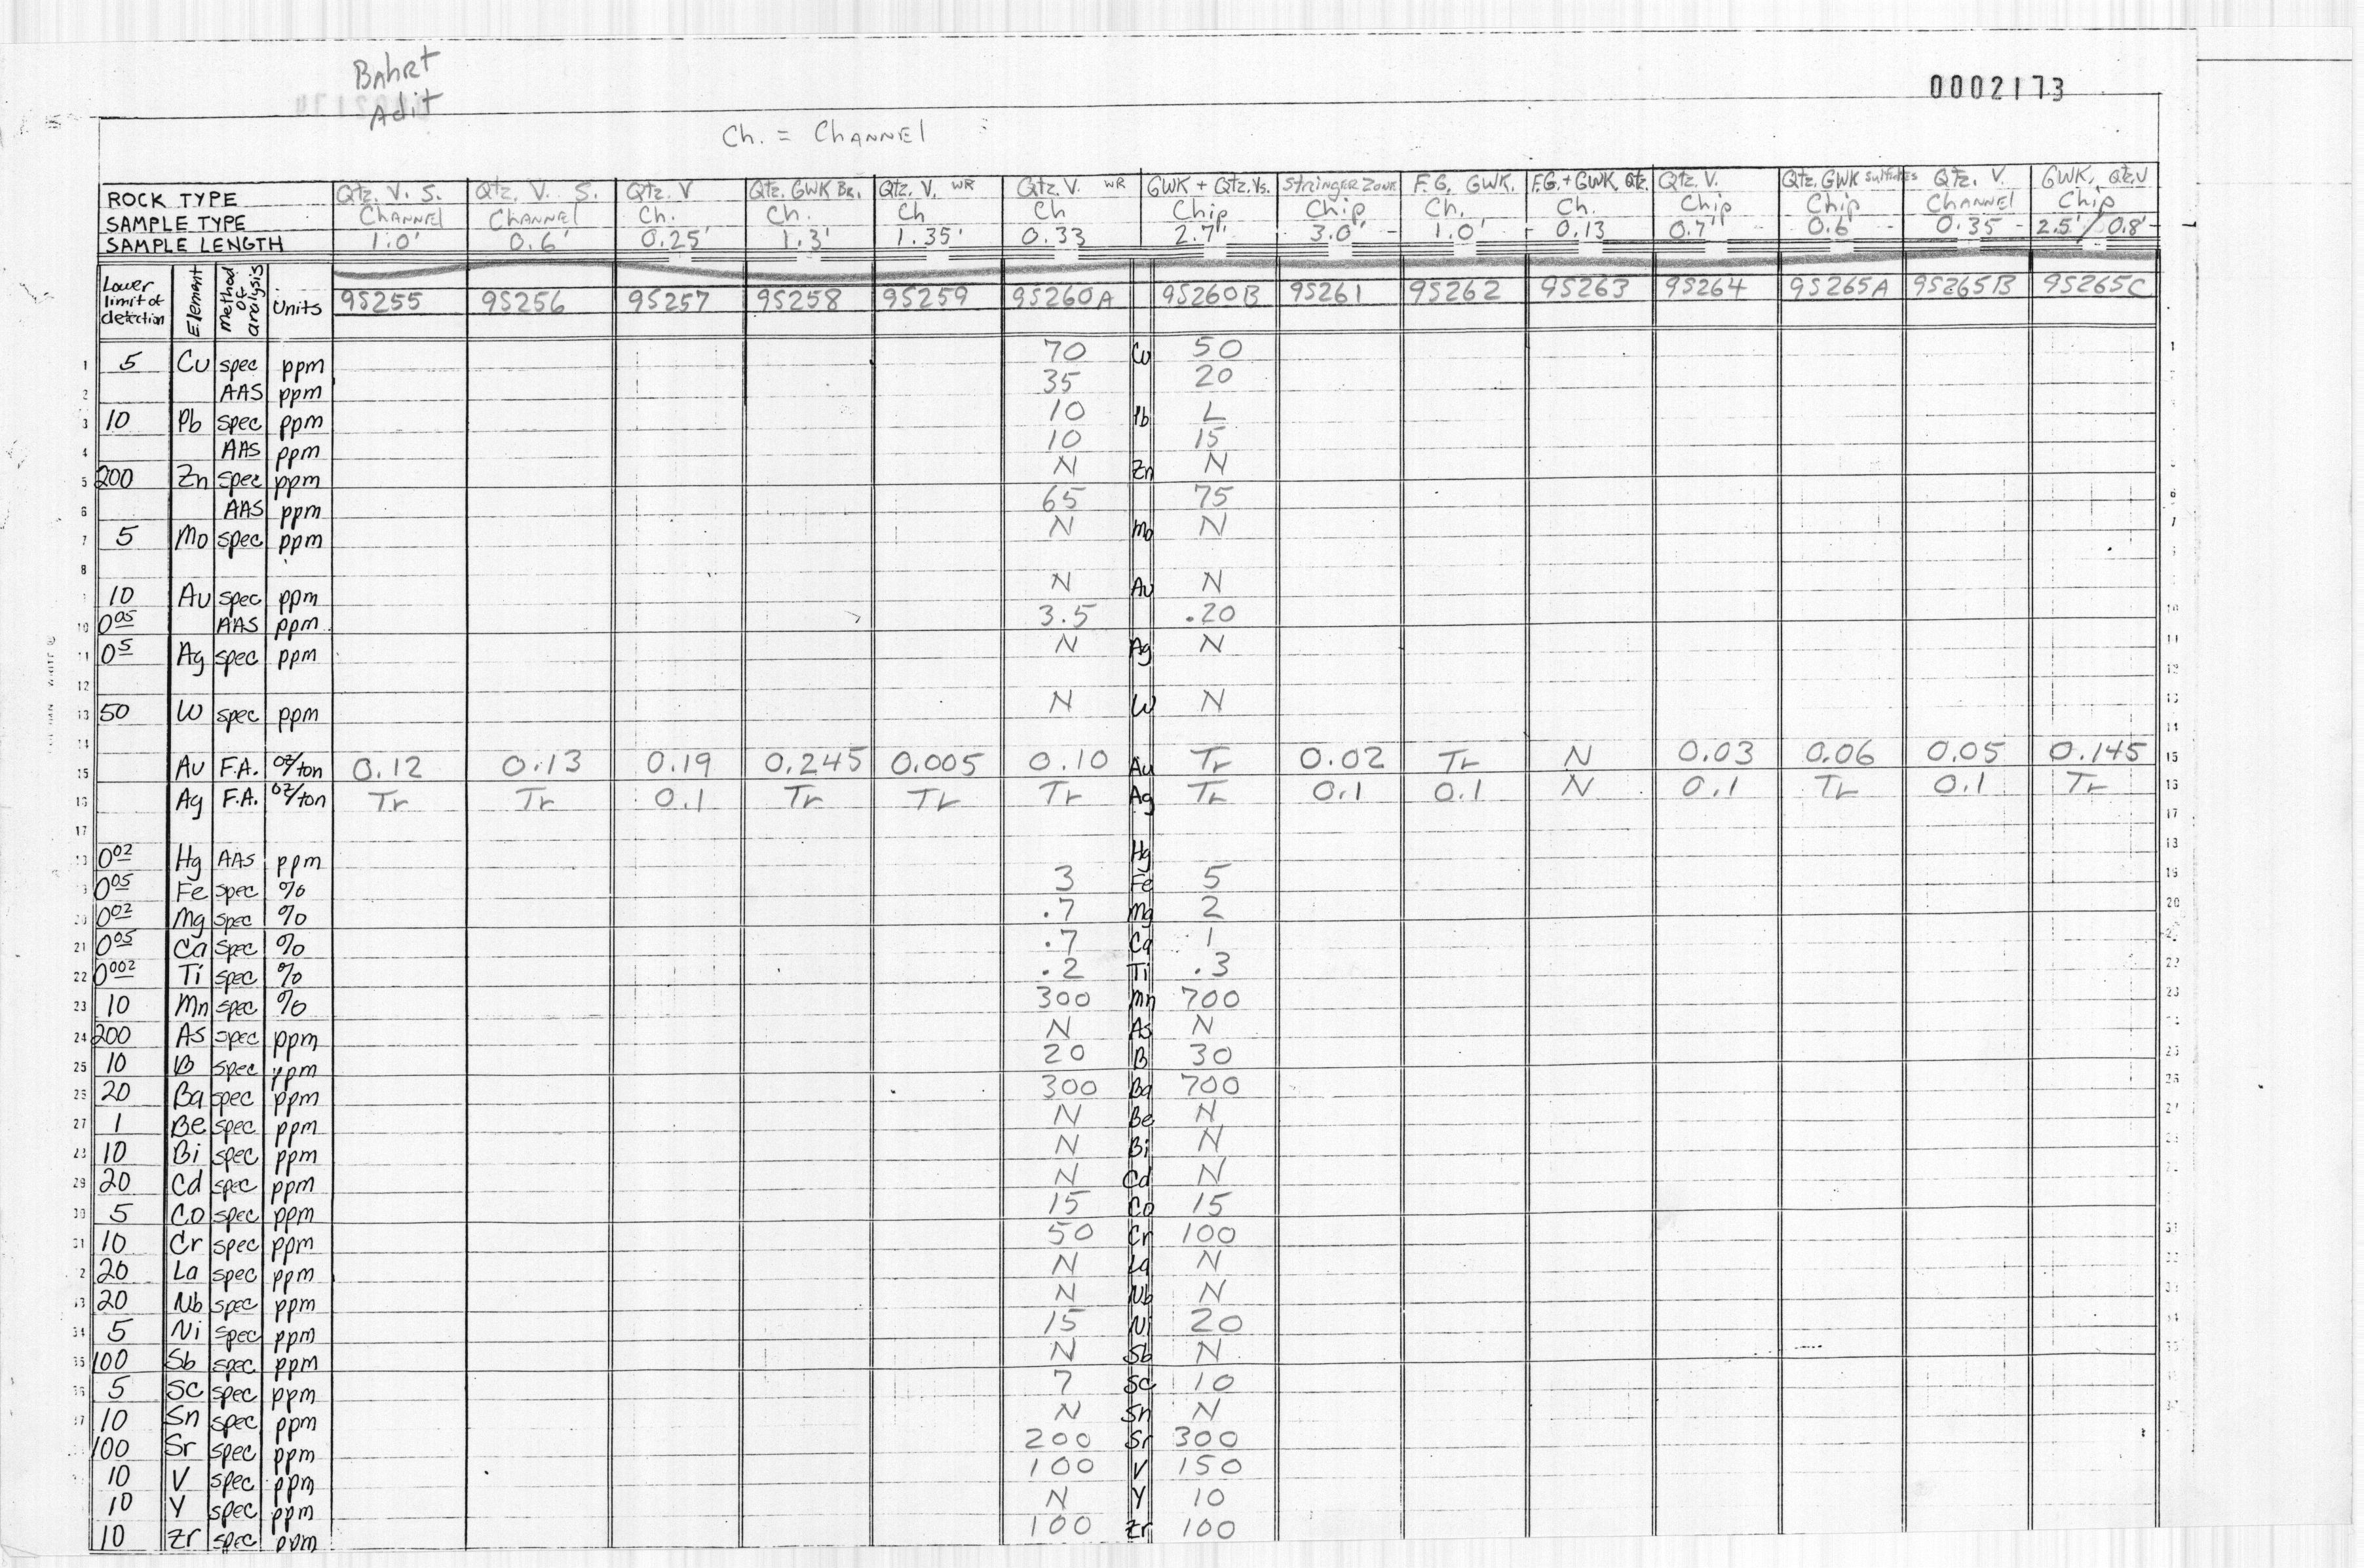 BAhRt
Adit
0002173
Ch. = CHANNEl
ROCK TYPE Qtz. V. S. Qtz. V. S. Qtz. V Qtz. GWK BR. Qtz. V. WR Qtz. V. WR GWK + Qtz. Vs. STRINGER ZONE F.G. GWK. F.G. + GWK, Qtz. Qtz. V. Qtz. GWK Sulfides Qtz. V. GWK, Qtz. V
SAMPLE TYPE CHANNEl CHANNEl Ch. Ch. Ch Ch Chip Chip Ch. Ch. Chip Chip CHANNEl Chip
SAMPLE LENGTH 1.0' 0.6' 0.25' 1.3' 1.35' 0.33 2.7' 3.0' 1.0' 0.13 0.7' 0.6' 0.35 2.5'/0.8'
Lower limit of detection Element Method of analysis Units 9S255 9S256 9S257 9S258 9S259 9S260A 9S260B 9S261 9S262 9S263 9S264 9S265A 9S265B 9S265C
1 5 Cu spec ppm 70 Cu 50 1
2 AAS ppm 35 20
3 10 Pb spec ppm 10 Pb L
4 AAS ppm 10 15
5 200 Zn spec ppm N Zn N
6 AAS ppm 65 75
7 5 Mo spec ppm N Mo N
8
10 Au spec ppm N Au N
10 0.05 AAS ppm 3.5 .20 10
11 0.5 Ag spec ppm N Ag N 11
12 12
13 50 W spec ppm N W N 13
14 14
15 Au F.A. oz/ton 0.12 0.13 0.19 0.245 0.005 0.10 Au Tr 0.02 Tr N 0.03 0.06 0.05 0.145 15
16 Ag F.A. oz/ton Tr Tr 0.1 Tr Tr Tr Ag Tr 0.1 0.1 N 0.1 Tr 0.1 Tr 16
17 17
18 0.02 Hg AAS ppm Hg 18
0.05 Fe spec % 3 Fe 5 19
20 0.02 Mg spec % .7 Mg 2 20
21 0.05 Ca spec % .7 Ca 1
22 0.002 Ti spec % .2 Ti .3 22
23 10 Mn spec % 300 Mn 700 23
24 200 As spec ppm N As N
25 10 B spec ppm 20 B 30 25
26 20 Ba spec ppm 300 Ba 700 26
27 1 Be spec ppm N Be N
28 10 Bi spec ppm N Bi N
29 20 Cd spec ppm N Cd N
30 5 Co spec ppm 15 Co 15
31 10 Cr spec ppm 50 Cr 100
20 La spec ppm N La N
20 Nb spec ppm N Nb N
34 5 Ni spec ppm 15 Ni 20
35 100 Sb spec ppm N Sb N
36 5 Sc spec ppm 7 Sc 10
37 10 Sn spec ppm N Sn N
100 Sr spec ppm 200 Sr 300
10 V spec ppm 100 V 150
10 Y spec ppm N Y 10
10 Zr spec ppm 100 Zr 100